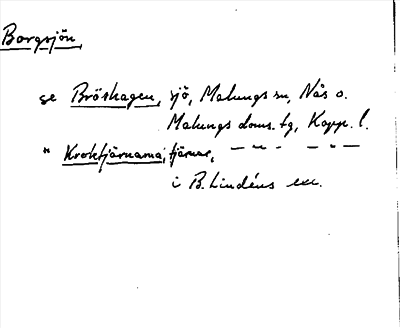 Borgsjön,
se Bröthagen, sjö, Malungs sn, Nås o.
Malungs doms. tg, Kopp. l.
" Kroktjärnarna, tjärnar, — " — — " —
i B. Lindéns exc.